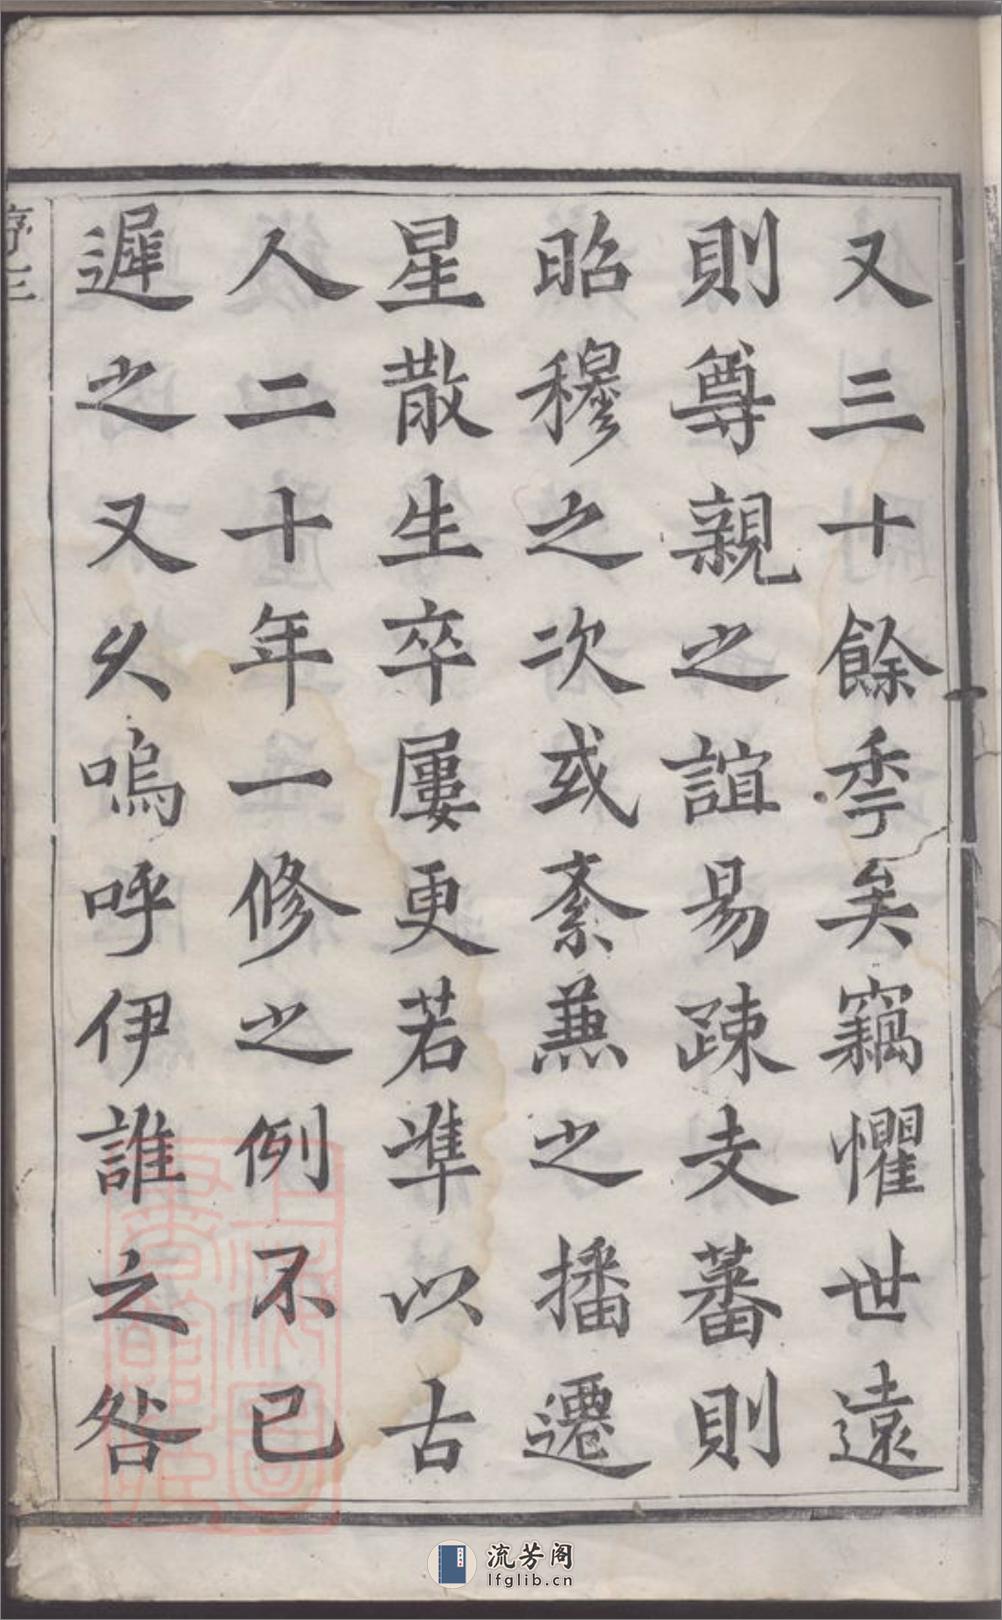 又三十餘秊矣竊懼世遠
則尊親之誼易疎支蕃則
昭穆之次或紊兼之播遷
星散生卒屢更若準以古
人二十年一修之例不已
遲之又久嗚呼伊誰之咎
序三
上海圖書館藏
流芳阁
lfglib.cn